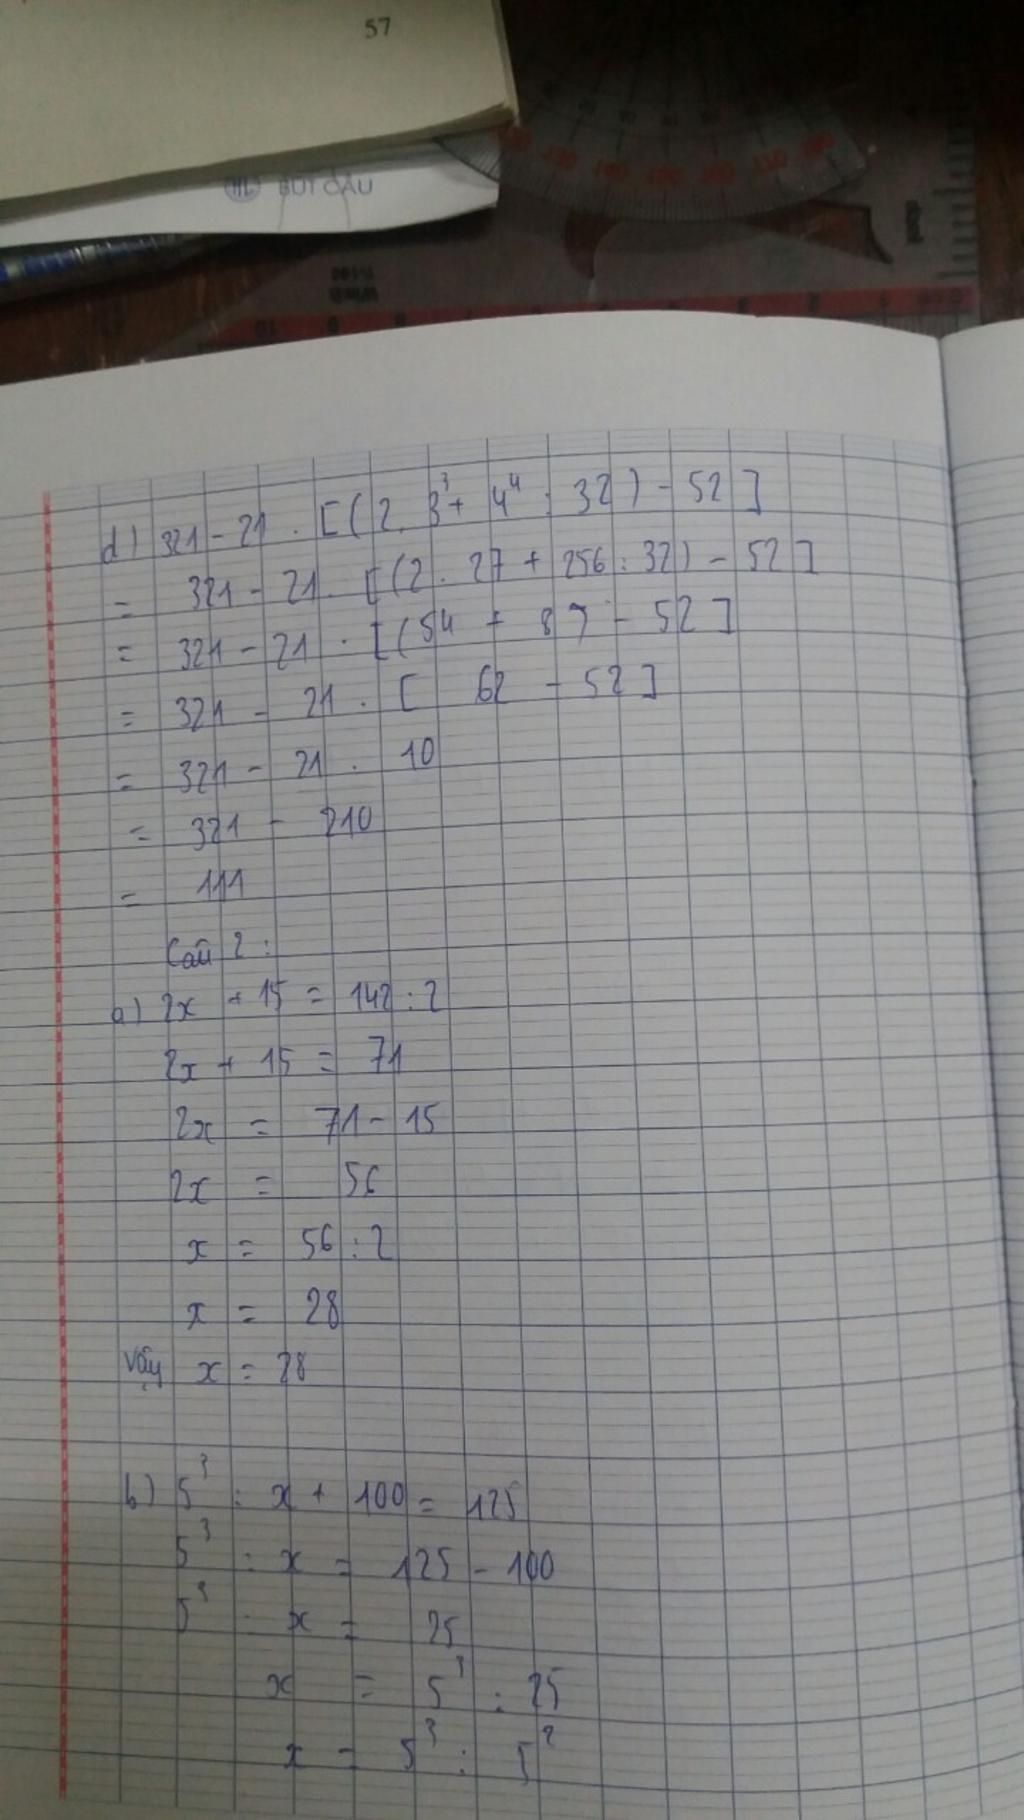 57
BÚT CẬU
d) 321 - 21 . [(2. 3³ + 4⁴ : 32) - 52]
= 321 - 21 . [(2. 27 + 256 : 32) - 52]
= 321 - 21 . [(54 + 8) - 52]
= 321 - 21 . [ 62 - 52]
= 321 - 21 . 10
= 321 - 210
= 111
Câu 2:
a) 2x + 15 = 142 : 2
2x + 15 = 71
2x = 71 - 15
2x = 56
x = 56 : 2
x = 28
Vậy x = 28
b) 5³ : x + 100 = 125
5³ : x = 125 - 100
5³ : x = 25
x = 5³ : 25
x = 5³ : 5²